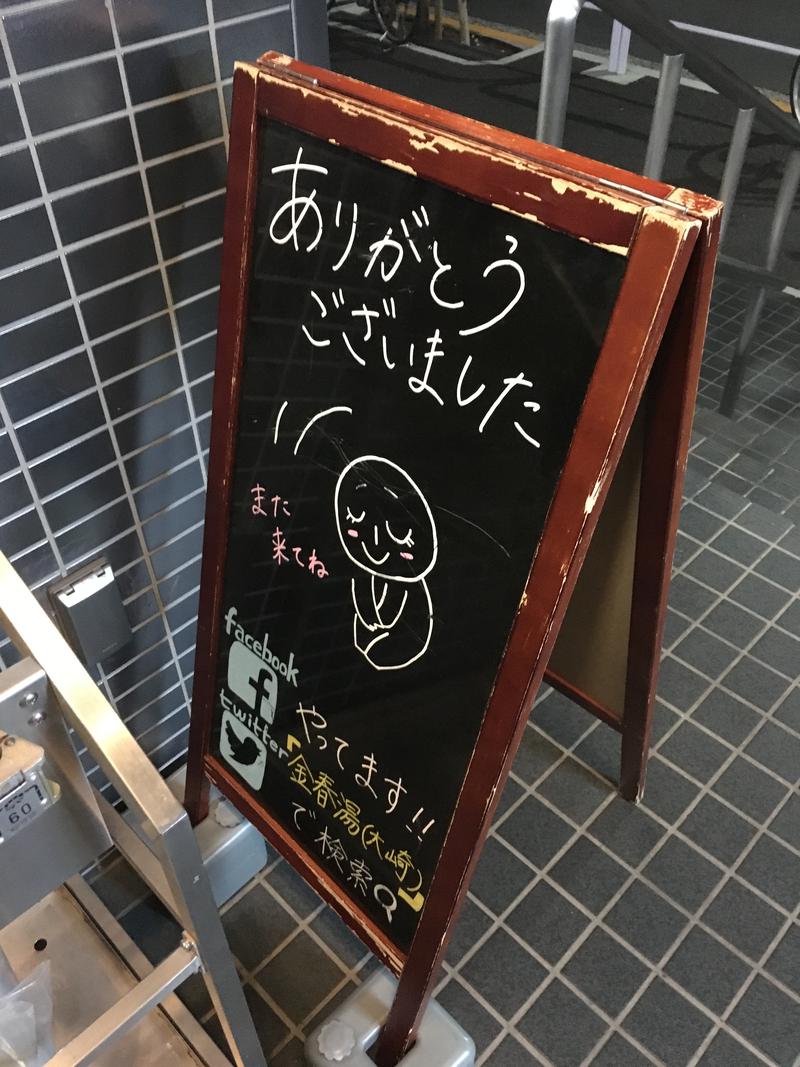 ありがとう
ございました
また
来てね
facebook
f
twitter
やってます!!
『金春湯(大崎)』
で検索
60